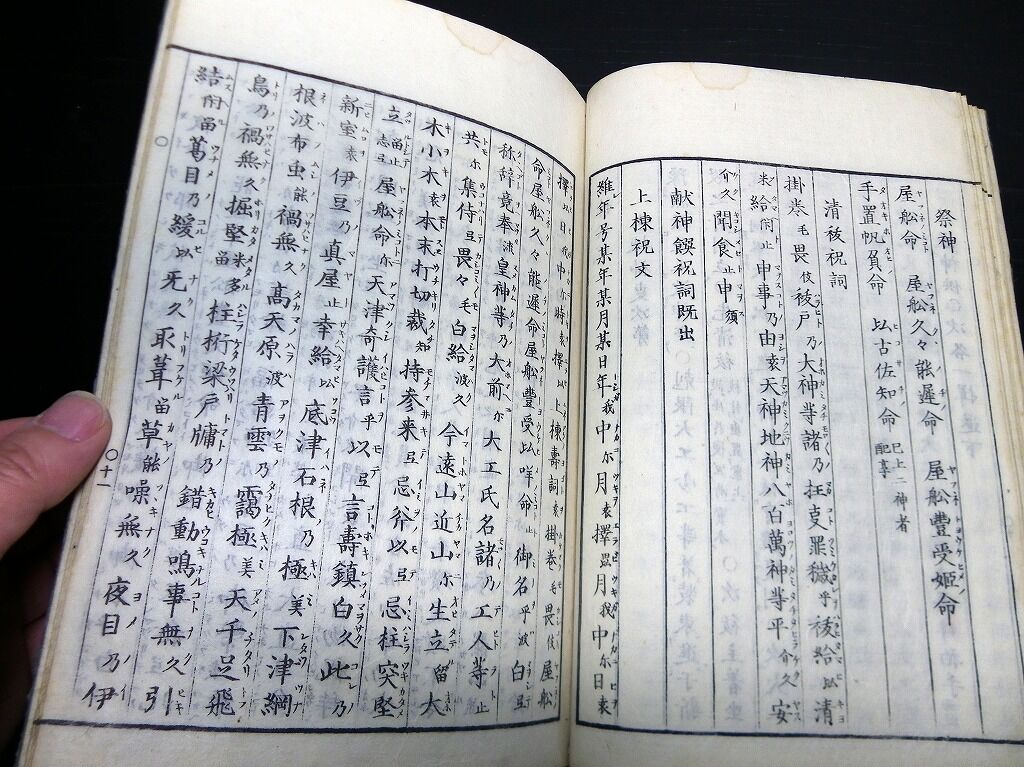 祭神
屋舩命 屋舩久々能遲命 屋舩豐受姬命
手置帆負命 比古佐知命 已上二神者配享
清秡祝詞
掛巻毛畏伎秡戸乃大神等諸乃罪穢乎秡給
止申事乃由袁天神地神八百萬神等平介久安
介久聞食止申須
献神饌祝詞既出
上棟祝文
維年号某年某月某日年我中尓月袁擇月我中尓日袁
擇日我中尓時袁擇上棟壽詞袁掛巻毛畏伎屋舩
命屋舩久々能遲命屋舩豐受命御名乎波白弖
称辞竟奉皇神等乃大前尓大工氏名諸乃工人等止
共尓集侍弖畏々毛白給波久今遠山近山尓生立留大
木小木袁本末打切裁知持参来弖忌斧以弖忌柱突堅
立屋舩命尓天津奇護言乎以弖言壽鎮白久此乃
新室袁伊豆乃真屋止幸給底津石根乃極美下津綱
根波布虫能禍無久高天原波青雲乃靄極美天千足飛
鳥乃禍無久掘堅多柱桁梁戸牖乃錯動鳴事無久引
結葛目乃緩无久取葺草能噪無久夜目乃伊
○十一